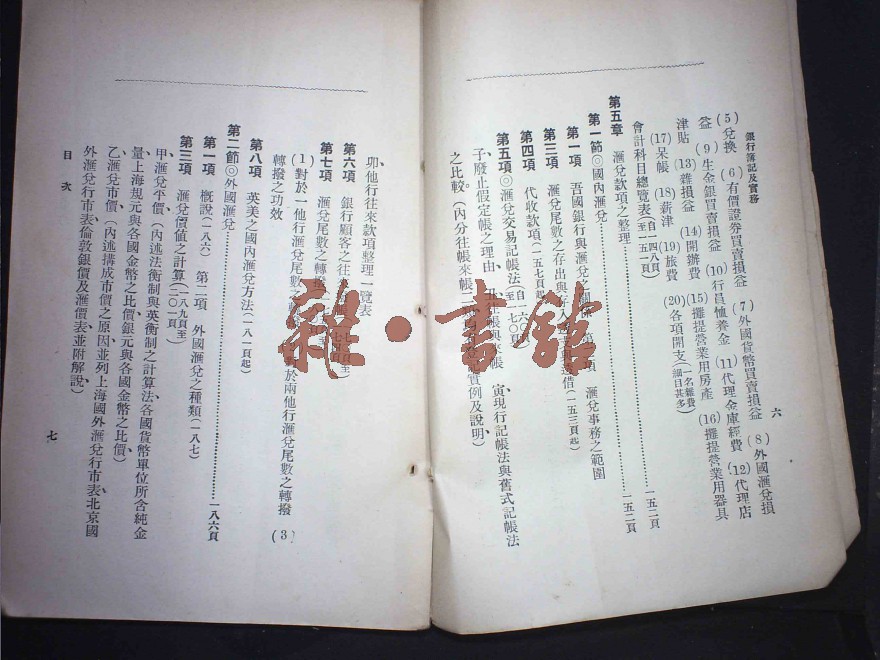 銀行簿記及實務
六
(5)兌換 (6)有價證券買賣損益 (7)外國貨幣買賣損益 (8)外國滙兌損
益 (9)生金銀買賣損益 (10)行員恤養金 (11)代理金庫經費 (12)代理店
津貼 (13)雜損益 (14)開辦費 (15)攤提營業用房產 (16)攤提營業用器具
(17)呆帳 (18)薪津 (19)旅費 (20)各項開支(一名雜費細目甚多)
會計科目總覽表(自一四八頁至一五一頁) 一五二頁
第五章 滙兌款項之整理 一五二頁
第一節◎國內滙兌
第一項 吾國銀行與滙兌 滙兌事務之範圍
第三項 滙兌尾數之存出與 借(一五三頁起)
第四項 代收款項(一五七頁起)
第五項◎滙兌交易記帳法(自一六 至一七〇頁)
子、廢止假定帳之理由、 往帳與來帳 寅、現行記帳法與舊式記帳法
之比較。(內分往帳來帳 實例及說明)
卯、他行往來款項整理一覽表
第六項 銀行顧客之往
第七項 滙兌尾數之轉撥
(1)對於一他行滙兌尾數之 對於兩他行滙兌尾數之轉撥 (3)
轉撥之功效
第八項 英美之國內滙兌方法(一八一頁起)
第二節◎外國滙兌 一八六頁
第一項 概說(一八六) 第二項 外國滙兌之種類(一八七)
第三項 滙兌價值之計算(一八九頁至二〇一頁)
甲、滙兌平價、(內述法衡制與英衡制之計算法各國貨幣單位所含純金
量上海規元與各國金幣之比價銀元與各國金幣之比價)
乙、滙兌市價、(內述構成市價之原因並列上海國外滙兌行市表、北京國
外滙兌行市表、倫敦銀價及滙價表並附解說)
目次
七
雜·書館